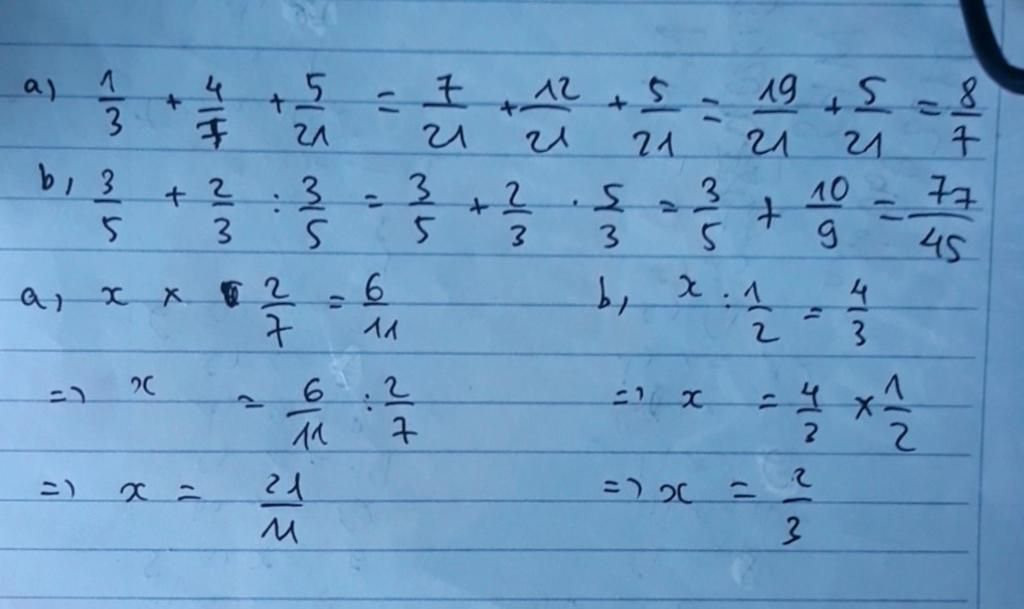 a) 1/3 + 4/7 + 5/21 = 7/21 + 12/21 + 5/21 = 19/21 + 5/21 = 8/7
b, 3/5 + 2/3 : 3/5 = 3/5 + 2/3 . 5/3 = 3/5 + 10/9 = 77/45
a, x × 2/7 = 6/11 b, x : 1/2 = 4/3
=> x = 6/11 : 2/7 => x = 4/3 × 1/2
=> x = 21/11 => x = 2/3